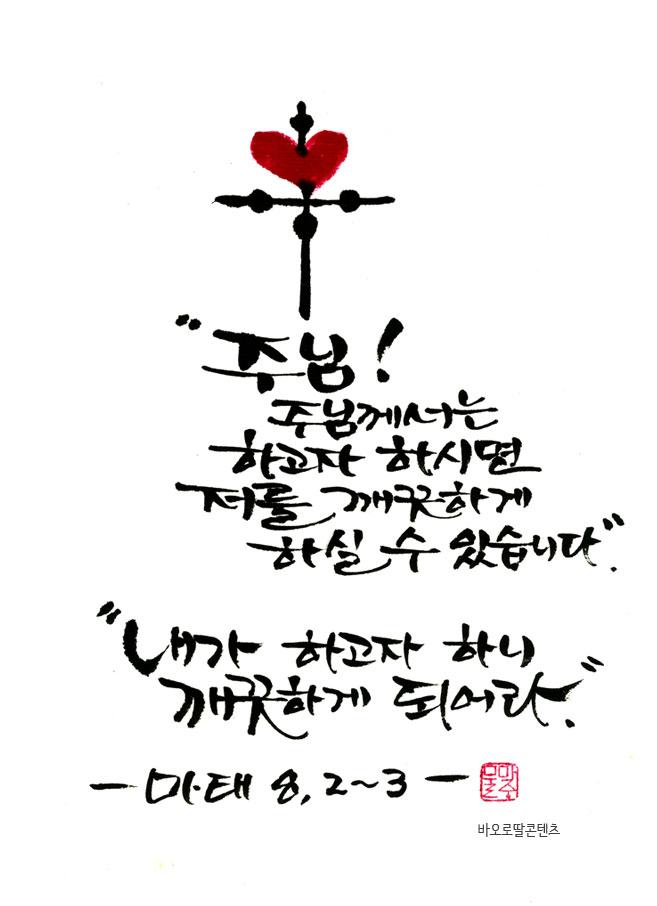 "주님!
주님께서는
하고자 하시면
저를 깨끗하게
하실 수 있습니다".
"내가 하고자 하니
깨끗하게 되어라."
- 마태 8, 2~3 -
바오로딸콘텐츠